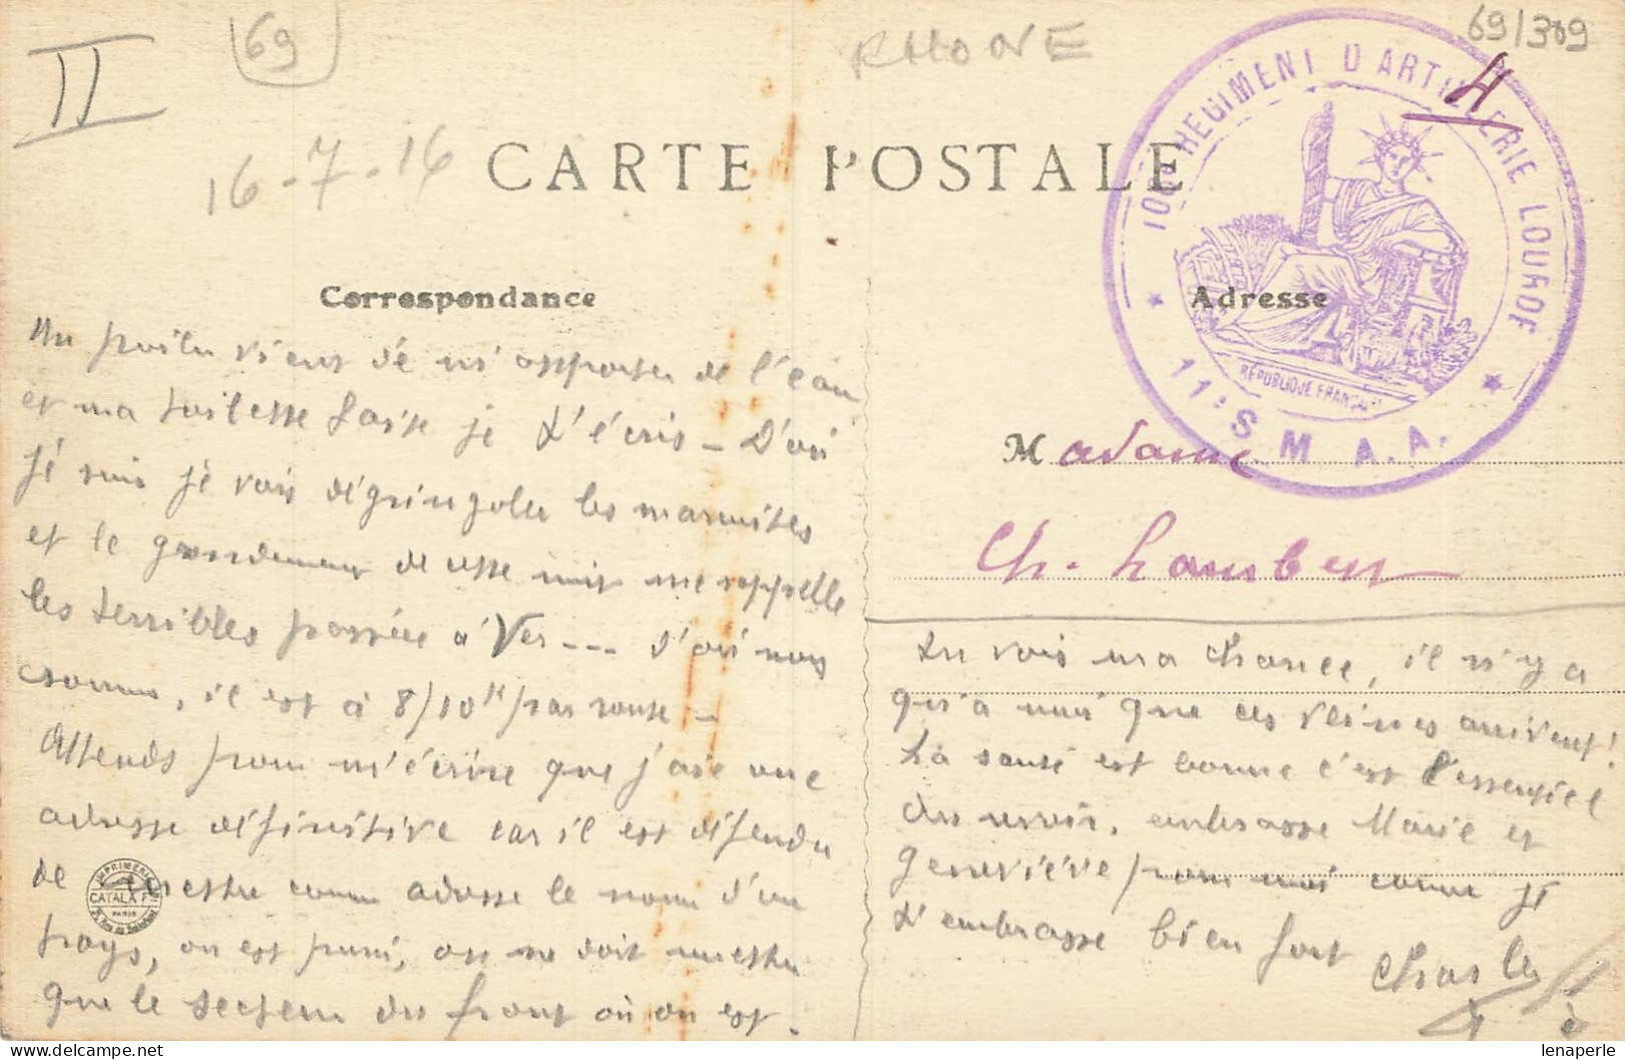 II
69
RHONE
69/309
4
16-7-16
CARTE POSTALE
100e REGIMENT D'ARTILLERIE LOURDE
REPUBLIQUE FRANÇAISE
11e S M A.A.
Correspondance
Adresse
Un poilu vient de m'apporter de l'eau
et ma toilette faite je t'écris – D'où
je suis je vois dégringoler les marmites
et le grondement de cette nuit me rappelle
les terribles passées à Ver--- d'où nous
sommes, il est à 8/10 k par route –
Attends pour m'écrire que j'aie une
adresse définitive car il est défendu
de mettre comme adresse le nom d'un
pays, on est puni, on ne doit mettre
que le secteur du front où on est.
IMPRIMERIE
CATALA Fres
PARIS
Madame
Ch. Lambert
Tu vois ma chance, il n'y a
qu'à moi que ces veines arrivent!
La santé est bonne c'est l'essentiel
Au revoir, embrasse Marie et
Geneviève pour moi comme je
t'embrasse bien fort
Charles
lenaperle.com